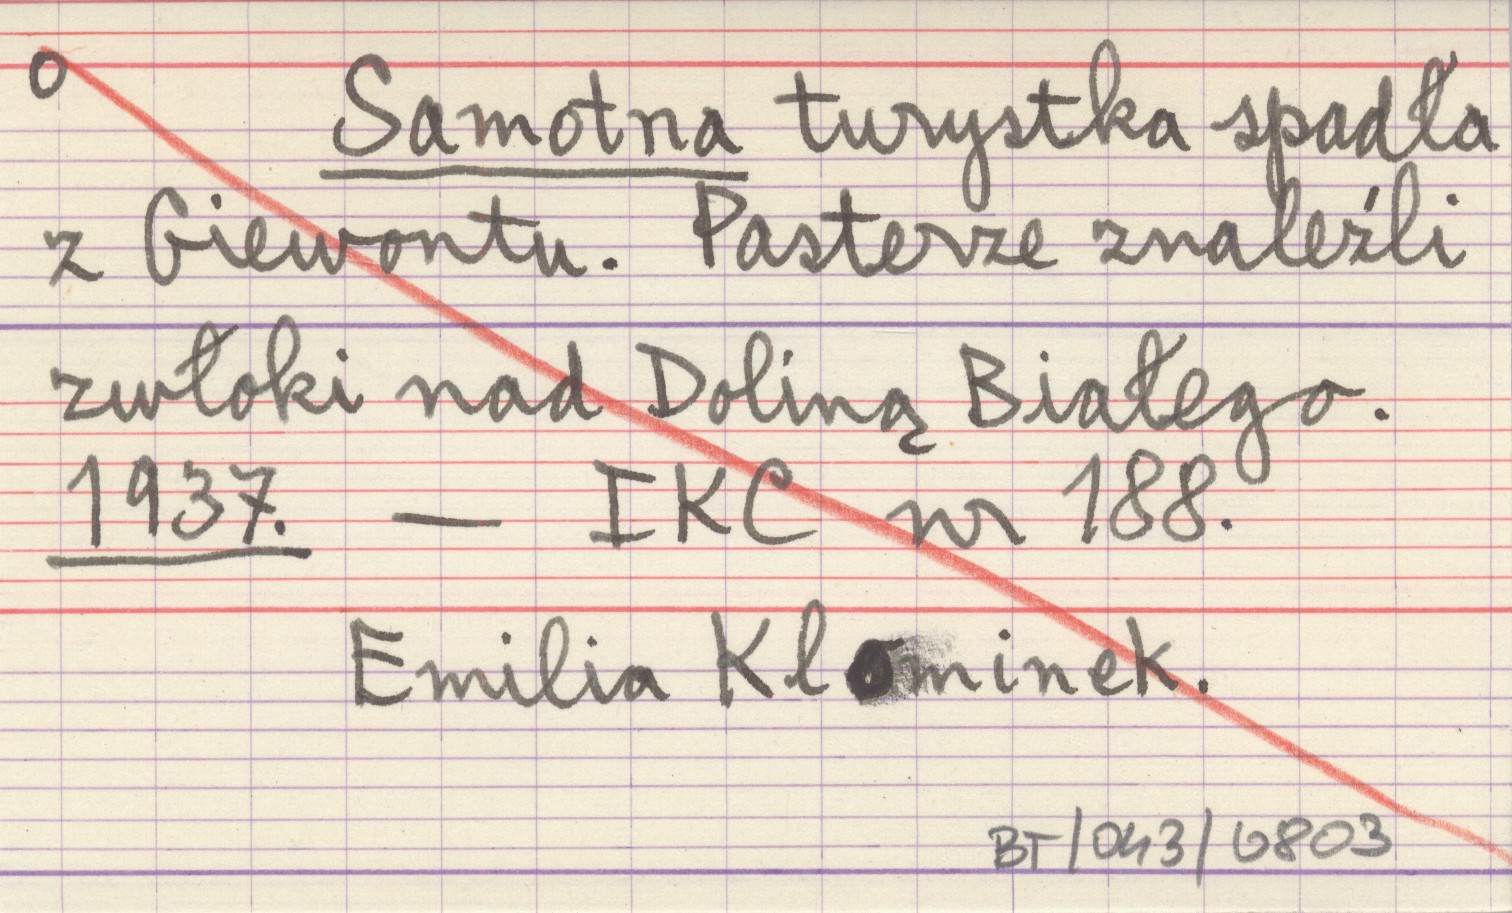 o Samotna turystka spadła
z Giewontu. Pasterze znaleźli
zwłoki nad Doliną Białego.
1937. — IKC nr 188.
Emilia Klominek.
BT/043/6803